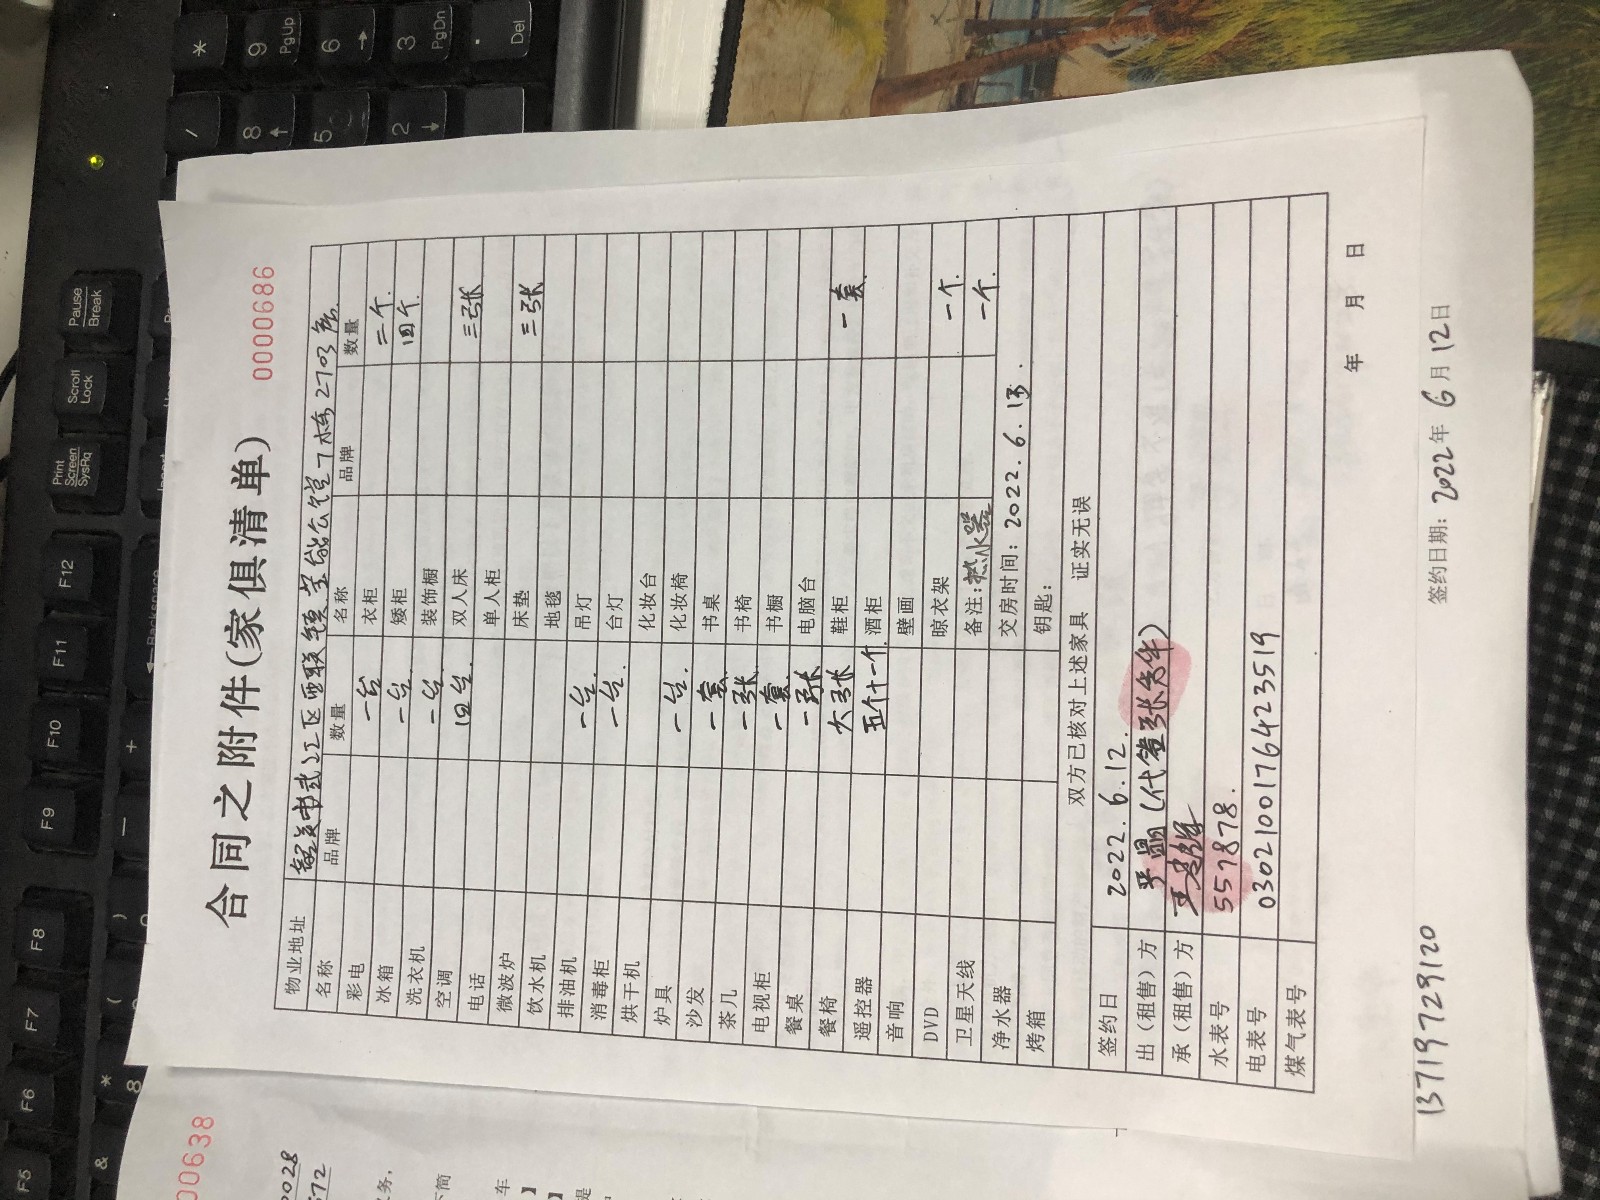 合同之附件(家俱清单)
0000686
物业地址 区西联 公馆7栋2703房
名称 品牌 数量 名称 品牌 数量
彩电 一台 衣柜 二个.
冰箱 一台. 矮柜 四个.
洗衣机 一台. 装饰橱
空调 四台. 双人床 三张
电话 单人柜
微波炉 床垫 三张
饮水机 地毯
排油机 一台. 吊灯
消毒柜 一台. 台灯
烘干机 化妆台
炉具 一台. 化妆椅
沙发 一套. 书桌
茶几 一张. 书椅
电视柜 一套. 书橱
餐桌 一张. 电脑台
餐椅 六张 鞋柜 一套.
遥控器 五个 酒柜
音响 壁画
DVD 晾衣架 一个.
卫星天线 备注:热水器 一个.
净水器 交房时间:2022.6.13.
烤箱 钥匙:
双方已核对上述家具 证实无误
签约日 2022.6.12.
出(租售)方 (代
承(租售)方
水表号 557878.
电表号 0302100176423519
煤气表号
年 月 日
13719729120
签约日期: 2022年6月12日
00638
0028
572
务.
下简
车
】
】
提
*
9
PgUp
6
→
3
PgDn
.
Del
/
8
↑
5
2
↓
Pause
Break
Scroll
Lock
Print
Screen
SysRq
F12
F11
F10
F9
F8
F7
F6
F5
Backspace
+
—
)
(
*
8
&